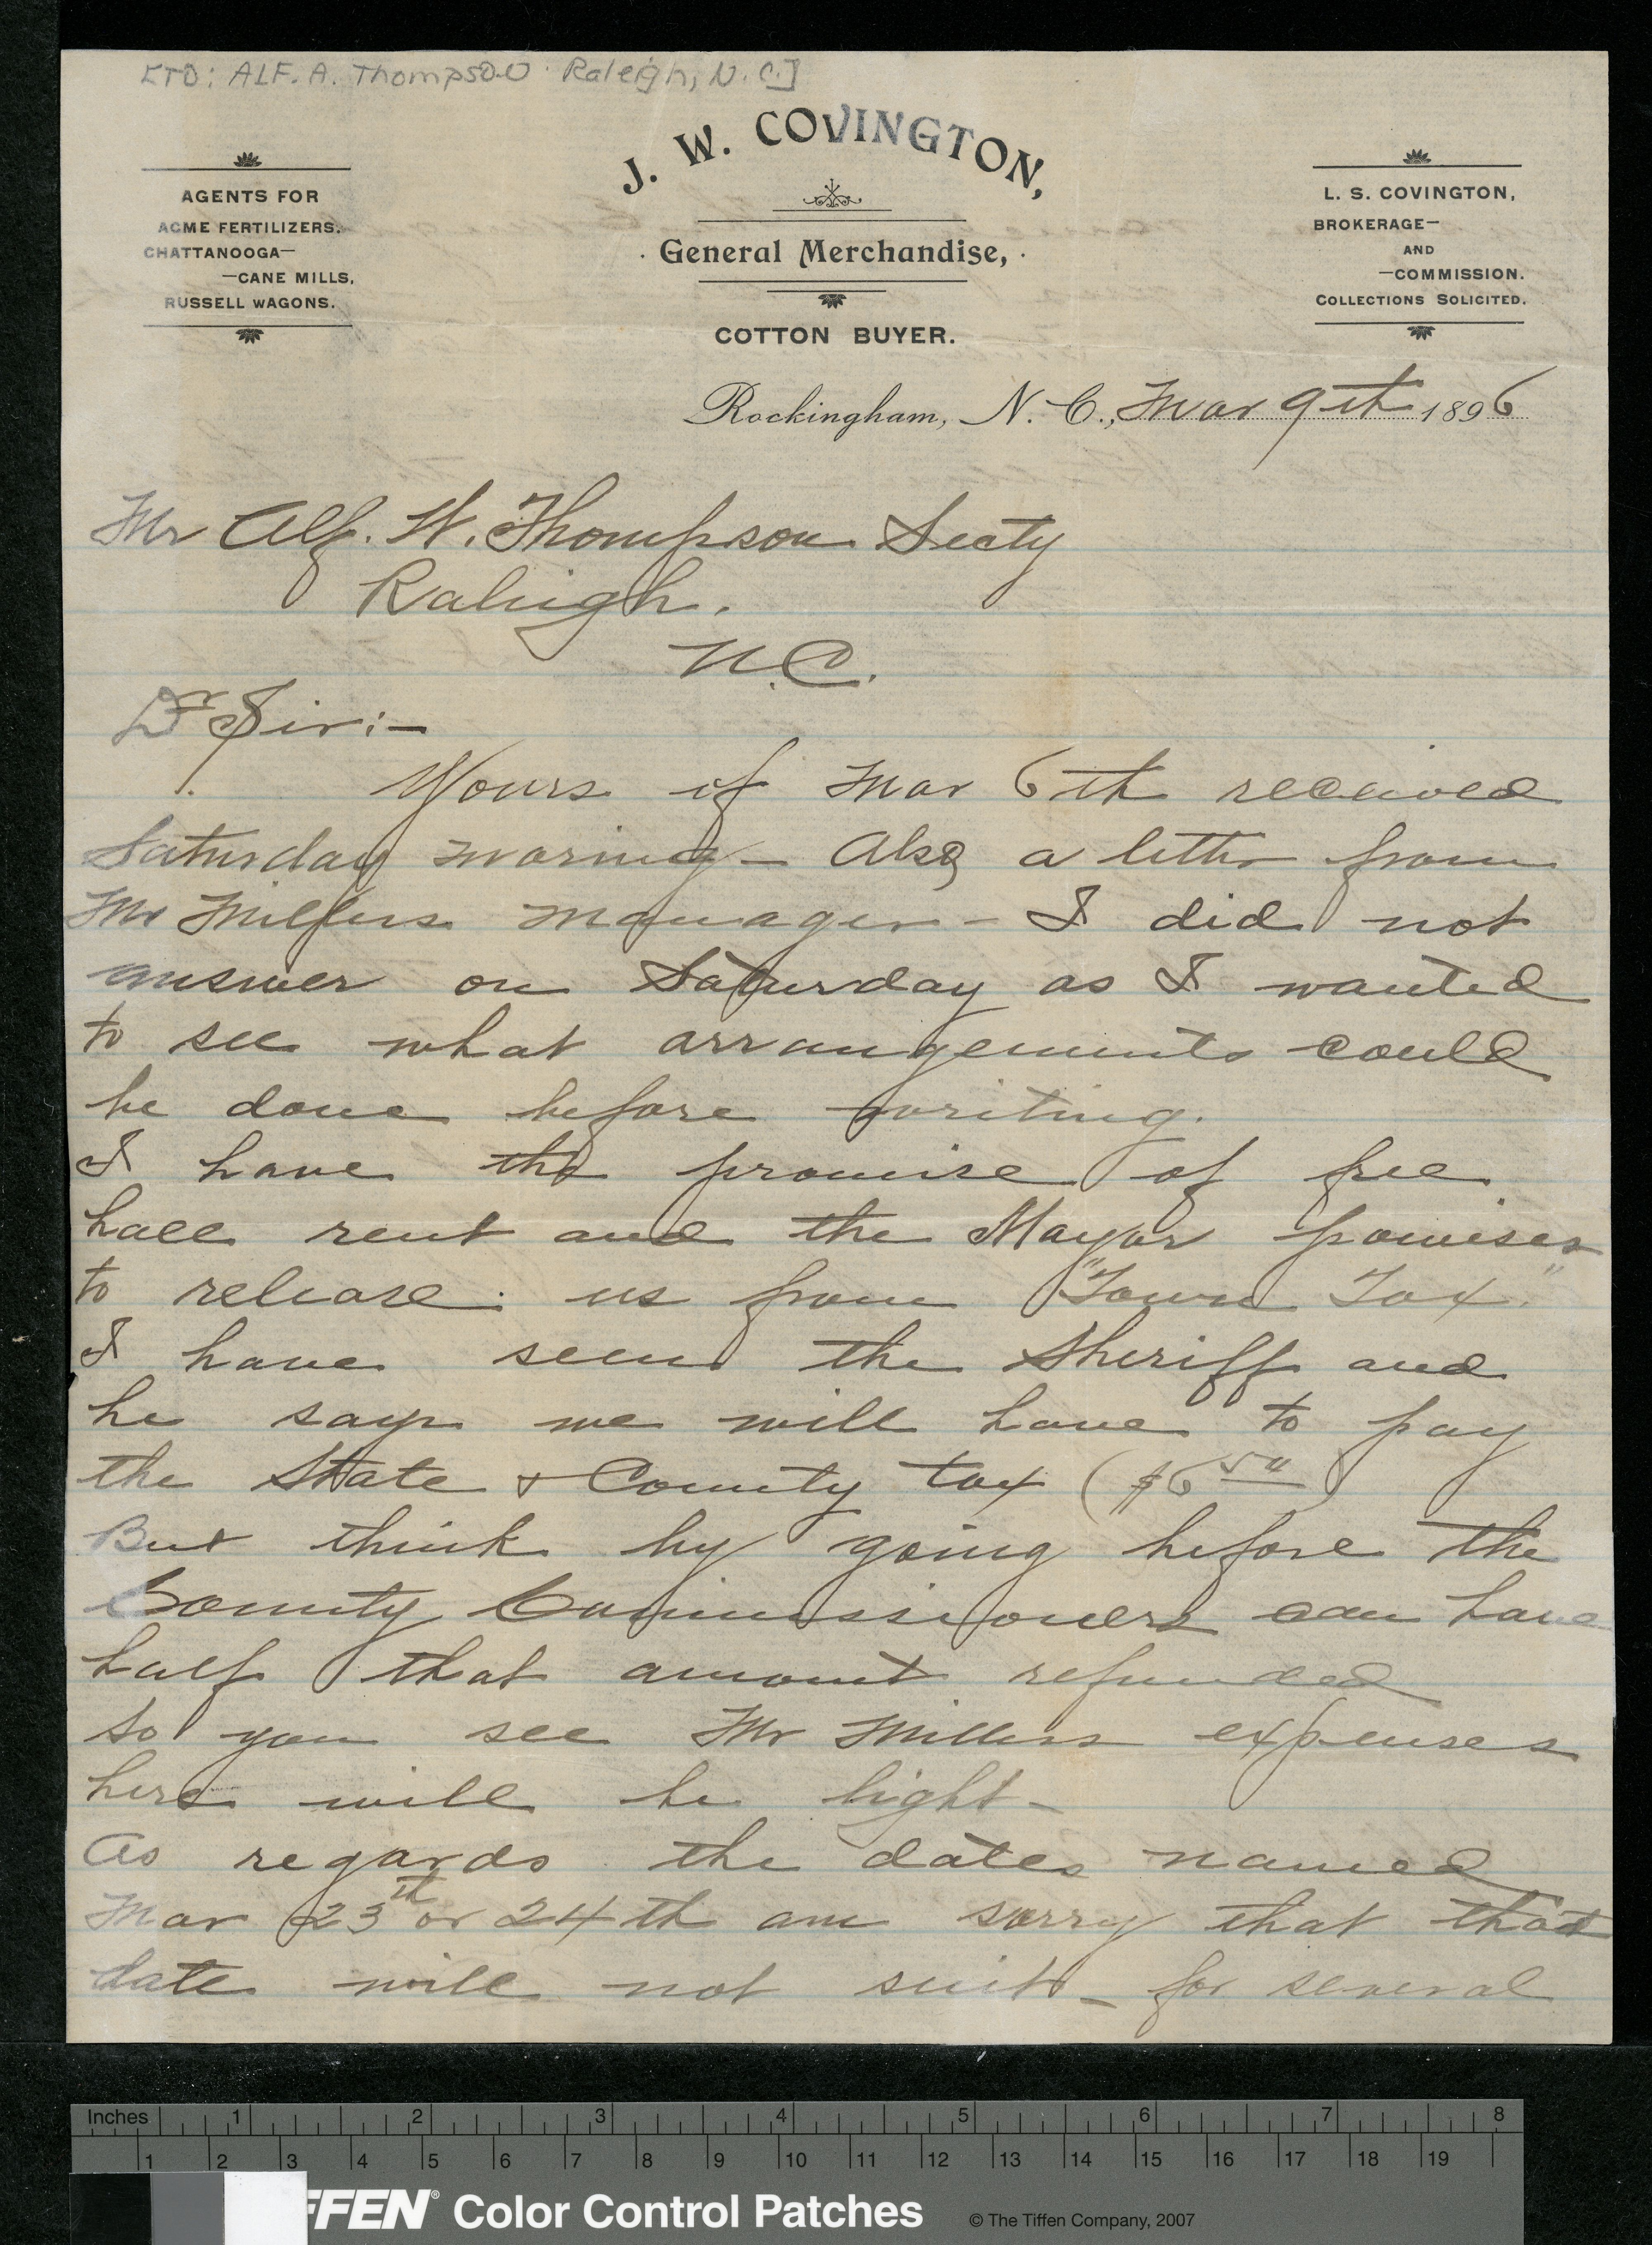 [TO: ALF. A. Thompson Raleigh, N.C.]
J. W. COVINGTON,
General Merchandise,
COTTON BUYER.
AGENTS FOR
ACME FERTILIZERS.
CHATTANOOGA—
—CANE MILLS,
RUSSELL WAGONS.
L. S. COVINGTON,
BROKERAGE—
AND
—COMMISSION.
COLLECTIONS SOLICITED.
Rockingham, N. C., Mar 9th 1896
Mr Alf. W. Thompson Secty
Raleigh.
N.C.
Dr Sir:—
Yours of Mar 6th received
Saturday moring — Also a letter from
Mr Millers manager — I did not
answer on Saturday as I wanted
to see what arrangements could
be done before writing.
I have the promise of free
hall rent and the Mayor promises
to release us from "Town Tax."
I have seen the Sheriff and
he says we will have to pay
the State & County tax ($6 50)
But think by going before the
County Commissioners can have
half that amount refunded
so you see Mr Millers expenses
here will be light —
As regards the dates named
Mar 23th or 24th am sorry that that
date will not suit — for several
Inches 1 2 3 4 5 6 7 8
1 2 3 4 5 6 7 8 9 10 11 12 13 14 15 16 17 18 19
FFEN® Color Control Patches © The Tiffen Company, 2007